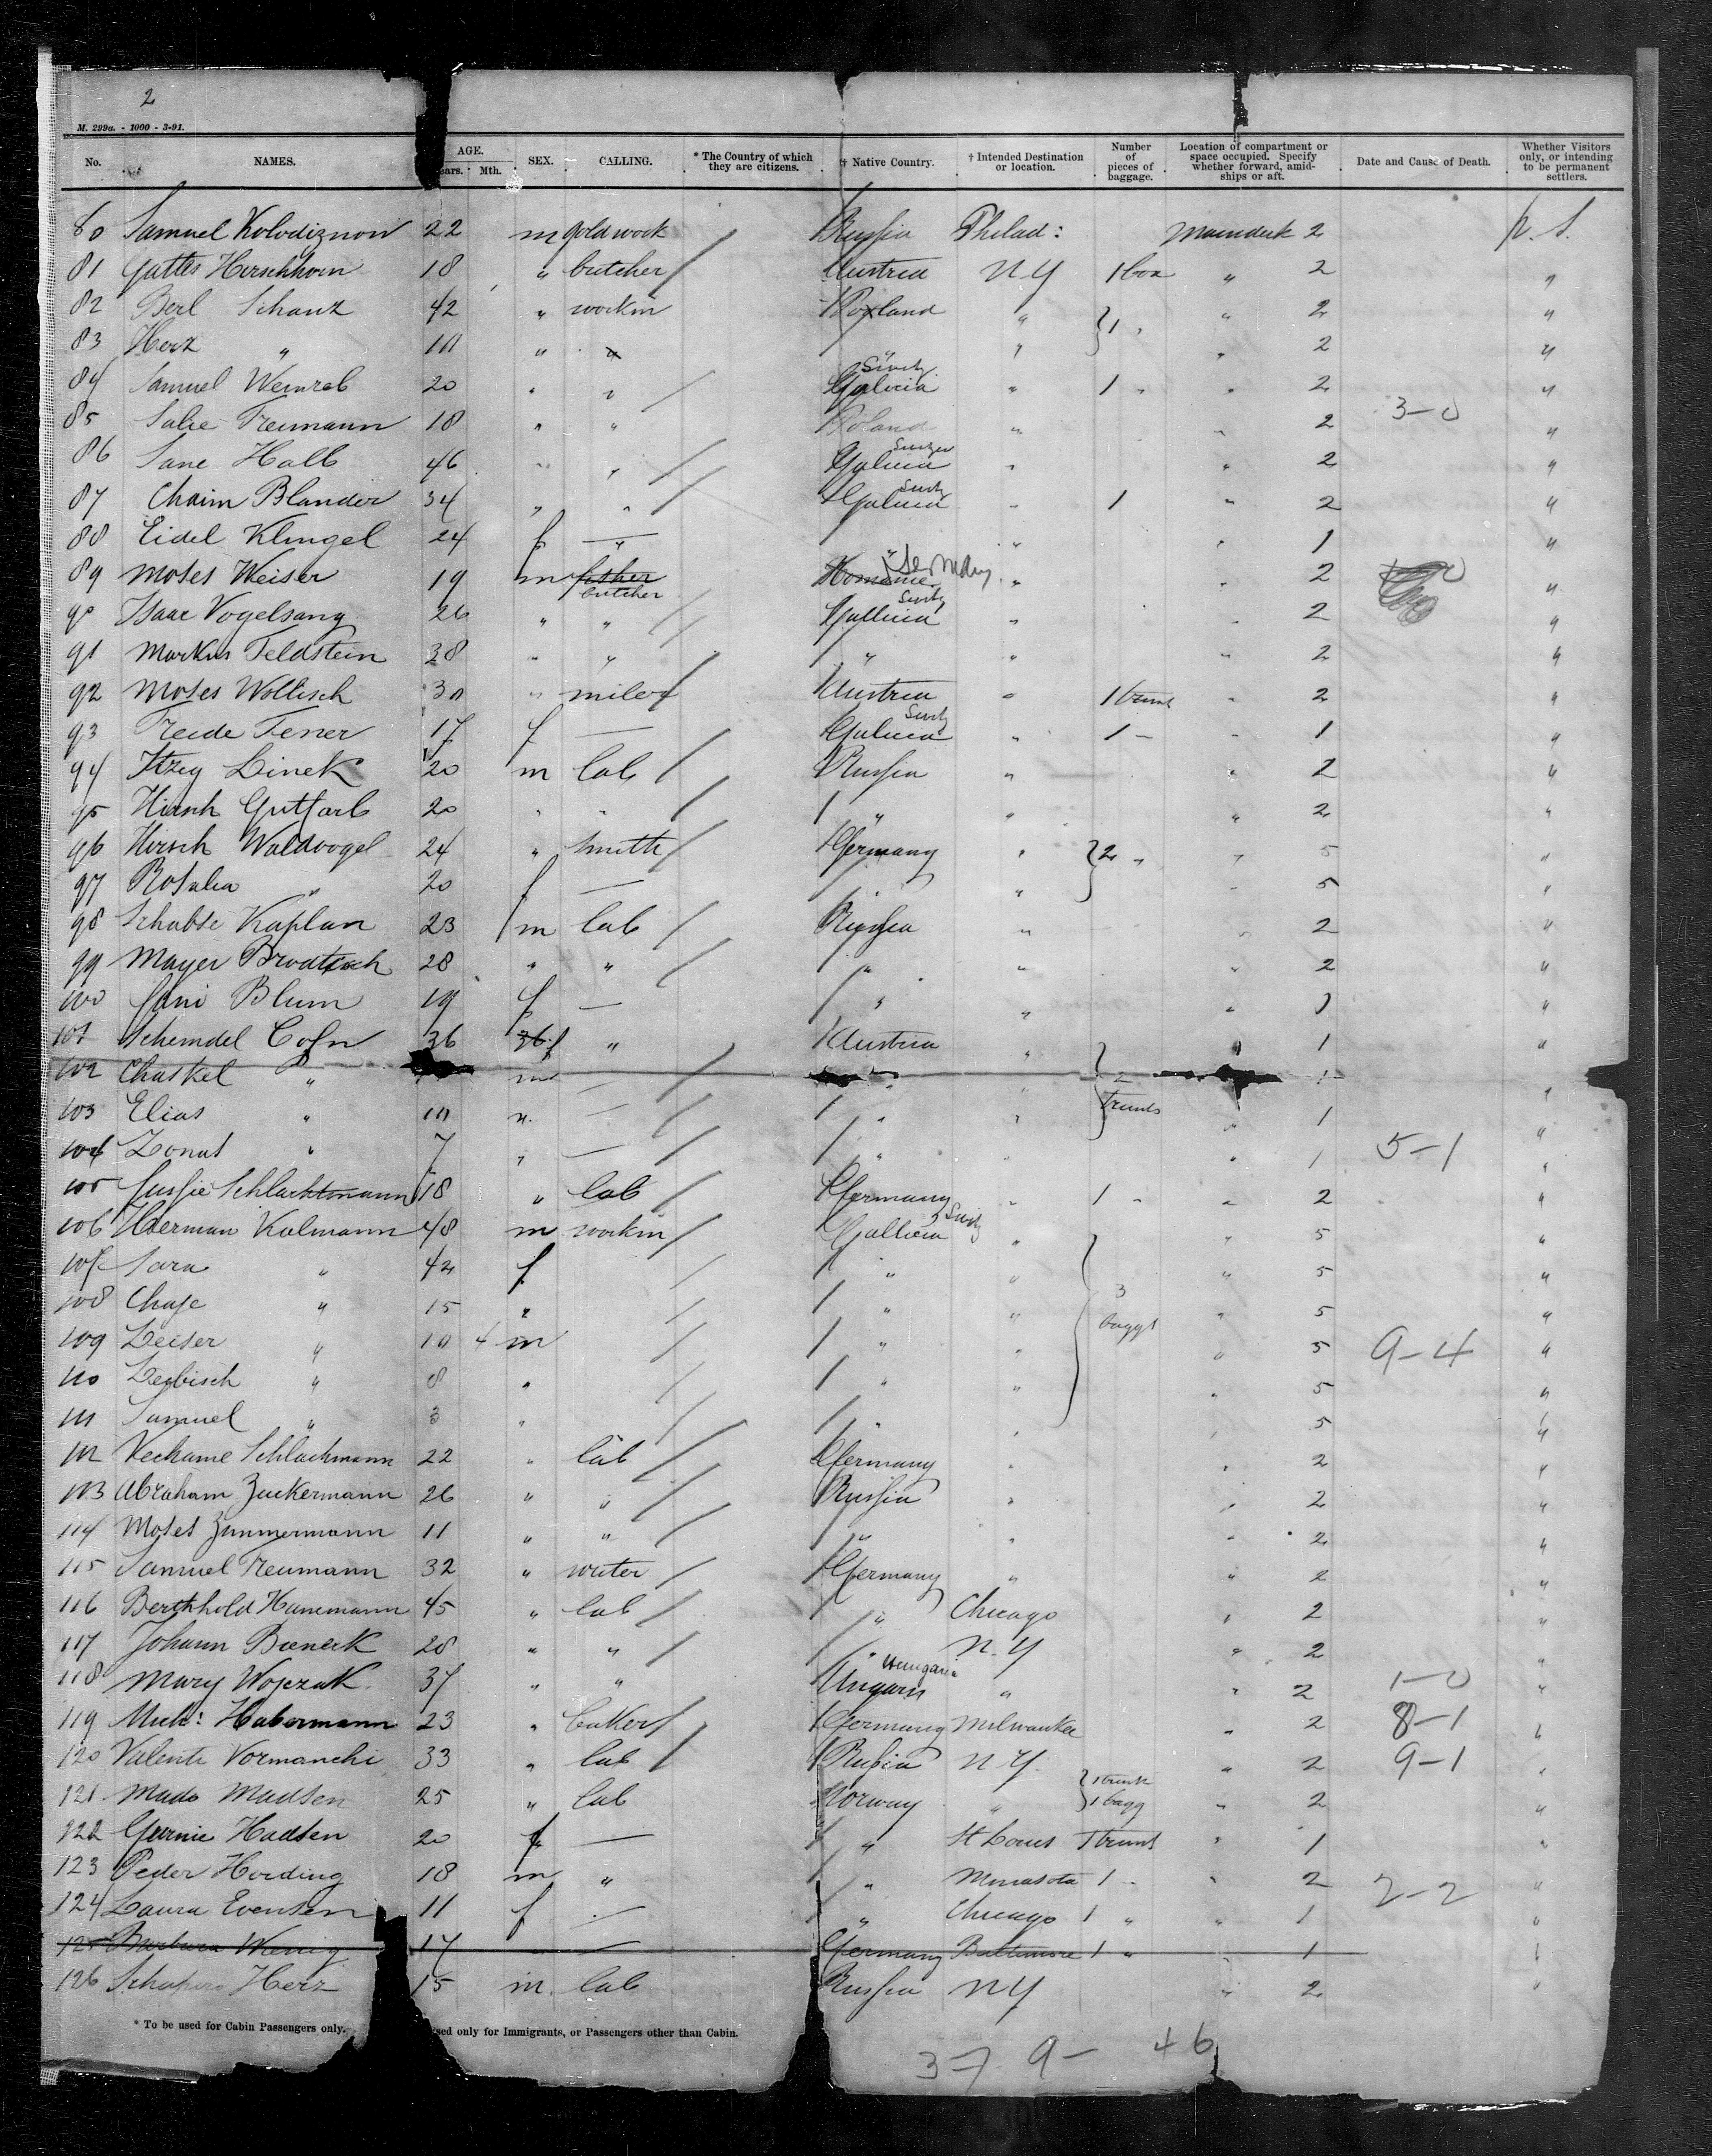 2
M. 299a. - 1000 - 3-91.
No. NAMES. AGE. Years. Mth. SEX. CALLING. * The Country of which they are citizens. † Native Country. † Intended Destination or location. Number of pieces of baggage. Location of compartment or space occupied. Specify whether forward, amidships or aft. Date and Cause of Death. Whether Visitors only, or intending to be permanent settlers.
80 Samuel Kolodiznow 22 m goldwork Russia Philad: Maindeck 2 p. S.
81 Hirschhorn 18 " butcher Austria NY 1 box " 2 "
82 Berl Schanz 42 " workin " } 1 " " 2 "
83 Herz " 10 " " " " 2 "
84 Samuel Weinreb 20 " " Galicia " 1 " " 2 "
85 Salie Freumann 18 " " Poland " " 2 3-0 "
86 Sane Halb 46 " " Galicia " " 2 "
87 Chaim Blander 34 " " Galicia " 1 " 2 "
88 Eidel Klingel 24 f — " " " 1 "
89 Moses Weiser 19 m fisher butcher Germany " " 2 "
90 Isaac Vogelsang 26 " " Gallicia " " 2 "
91 Markus Feldstein 38 " " " " " 2 "
92 Moses Wollisch 30 " Austria " 1 trunk " 2 "
93 Freide Fener 17 f — Galicia " 1 — " 1 "
94 Itzig Linek 20 m lab Russia " " 2 "
95 Hirsch Gutfarb 20 " " " " " 2 "
96 Hirsch Waldvogel 24 " smith Germany " } 2 " " 5 "
97 Rosalia " 20 f — " " " 5 "
98 Schabse Kaplan 23 m lab Russia " " 2 "
99 Mayer 28 " " " " " 2 "
100 Jani Blum 19 f — " " " 1 "
101 Scheindel Cohn 36 f " Austria " " 1 "
102 Chaskel " m — " " 2 trunks 1 "
103 Elias " 10 " — " " " 1 "
104 " 7 " — " " " 1 5-1 "
105 Jussie Schlachtmann 18 " lab Germany " 1 " " 2 "
106 Herman Kalmann 48 m workin Gallicia " " 5 "
107 Sara " 42 f " " " 5 "
108 Chaje " 15 " " " 3 baggs " 5 "
109 Leiser " 10 4 m " " " 5 9-4 "
110 Leibisch " 8 " " " " 5 "
111 Samuel " 3 " " " " 5 "
112 Nechame Schlachmann 22 " lab Germany " " 2 "
113 Abraham Zuckermann 26 " " Russia " " 2 "
114 Moses Zimmermann 11 " " " " " 2 "
115 Samuel Freumann 32 " writer Germany " " 2 "
116 Berthhold Hanemann 45 " lab " Chicago " 2 "
117 Johann 28 " " " N.Y " 2 "
118 Mary Wojczak 37 " " Ungarn Hungaria " " 2 1-0 "
119 Mich: Habermann 23 " baker Germany Milwaukee " 2 8-1 "
120 Valenti Vormanchi 33 " lab Russia N.Y. " 2 9-1 "
121 Mads Madsen 25 " lab Norway " } 1 trunk 1 bagg " 2 "
122 Hadsen 20 f — " St Louis 1 trunk " 1 "
123 Peder Hording 18 m " " Minasota 1 " " 2 2-2 "
124 Laura Evensen 11 f — " Chicago 1 " " 1 "
125 Barbara 17 — Germany Baltimore 1 " 1 "
126 Schapiro Herz 15 m. lab Russia NY " 2 "
* To be used for Cabin Passengers only. used only for Immigrants, or Passengers other than Cabin.
37 9- 46